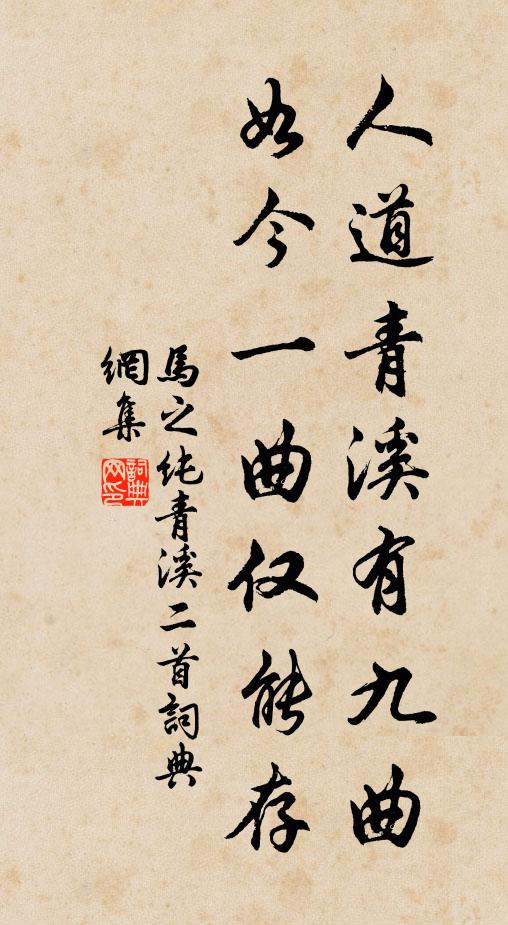 人道青溪有九曲
如今一曲仅能存
馬之纯青溪二首詞典
網集
詞典网印